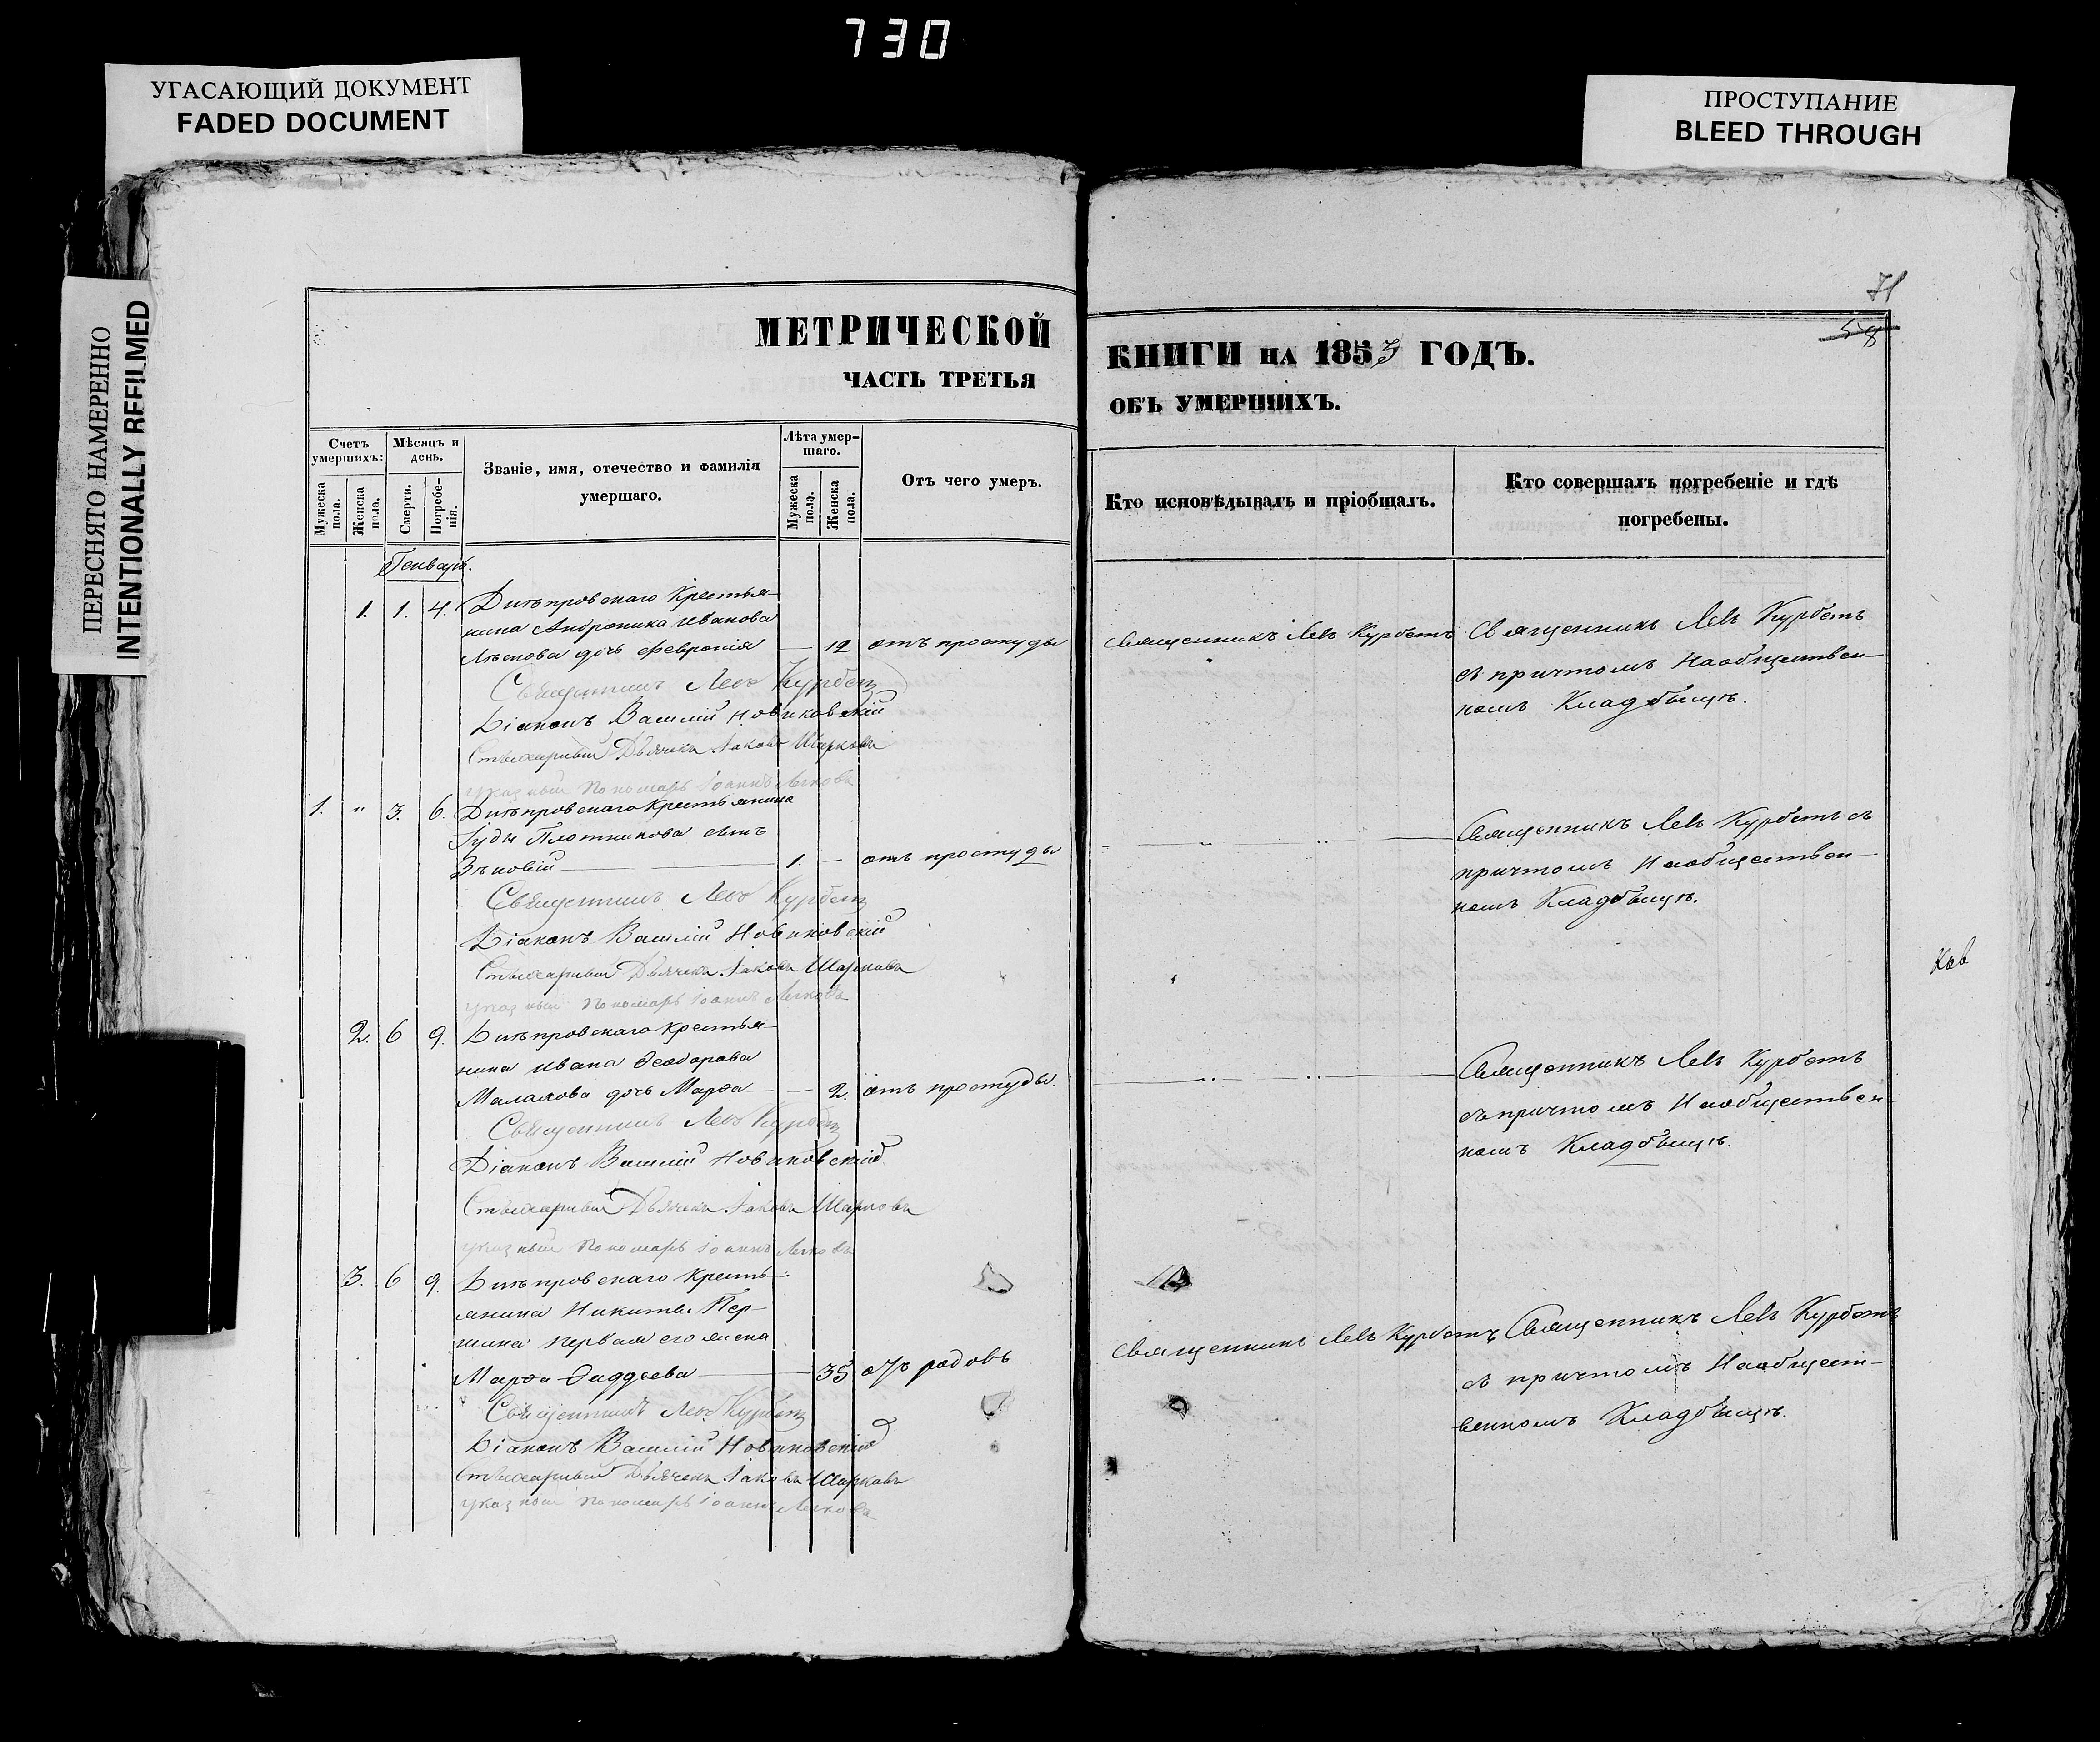 730
УГАСАЮЩИЙ ДОКУМЕНТ
FADED DOCUMENT
ПРОСТУПАНИЕ
BLEED THROUGH
ПЕРЕСНЯТО НАМЕРЕННО
INTENTIONALLY REFILMED
71
МЕТРИЧЕСКОЙ
ЧАСТЬ ТРЕТЬЯ
Счетъ умершихъ:
Мужеска пола.
Женска пола.
Мѣсяцъ и день.
Смерти.
Погребенія.
Званіе, имя, отечество и фамилія умершаго.
Лѣта умершаго.
Мужеска пола.
Женска пола.
Отъ чего умеръ.
Генварь.
1. 1. 4. Днѣпровскаго Крестья-
нина Андроника Иванова
дочь Февронія — 12 отъ простуды
Священникъ Левъ Курбетъ
Діаконъ Василій Новиковскій
Стихарный Дьячекъ Іаковъ Шарковъ
указный Пономарь Іоаннъ
1. " 3. 6. Днѣпровскаго Крестьянина
Іуды Плотникова сынъ
Зѣновій — 1. — отъ простуды
Священникъ Левъ Курбетъ
Діаконъ Василій Новиковскій
Стихарный Дьячекъ Іаковъ Шарковъ
указный Пономарь Іоаннъ
2. 6 9. Днѣпровскаго Крестья-
нина Ивана Ѳеодорова
Малахова дочь Марѳа — 2. отъ простуды.
Священникъ Левъ Курбетъ
Діаконъ Василій Новиковскій
Стихарный Дьячекъ Іаковъ Шарковъ
указный Пономарь Іоаннъ
3. 6 9. Днѣпровскаго Кресть-
янина Никиты Пер-
шина первая его жена
Марѳа Ѳаддеева — 35 отъ родовъ
Священникъ Левъ Курбетъ
Діаконъ Василій Новиковскій
Стихарный Дьячекъ Іаковъ Шарковъ
указный Пономарь Іоаннъ
КНИГИ НА 1853 ГОДЪ.
ОБЪ УМЕРШИХЪ.
Кто исповѣдывалъ и пріобщалъ.
Кто совершалъ погребеніе и гдѣ погребены.
Священникъ Левъ Курбетъ
Священникъ Левъ Курбетъ
съ причтомъ На обществен-
номъ Кладбищѣ.
Священникъ Левъ Курбетъ съ
причтомъ На обществен-
номъ Кладбищѣ.
Священникъ Левъ Курбетъ
съ причтомъ На обществен-
номъ Кладбищѣ.
Священникъ Левъ Курбетъ
Священникъ Левъ Курбетъ
съ причтомъ На общест-
венномъ Кладбищѣ.